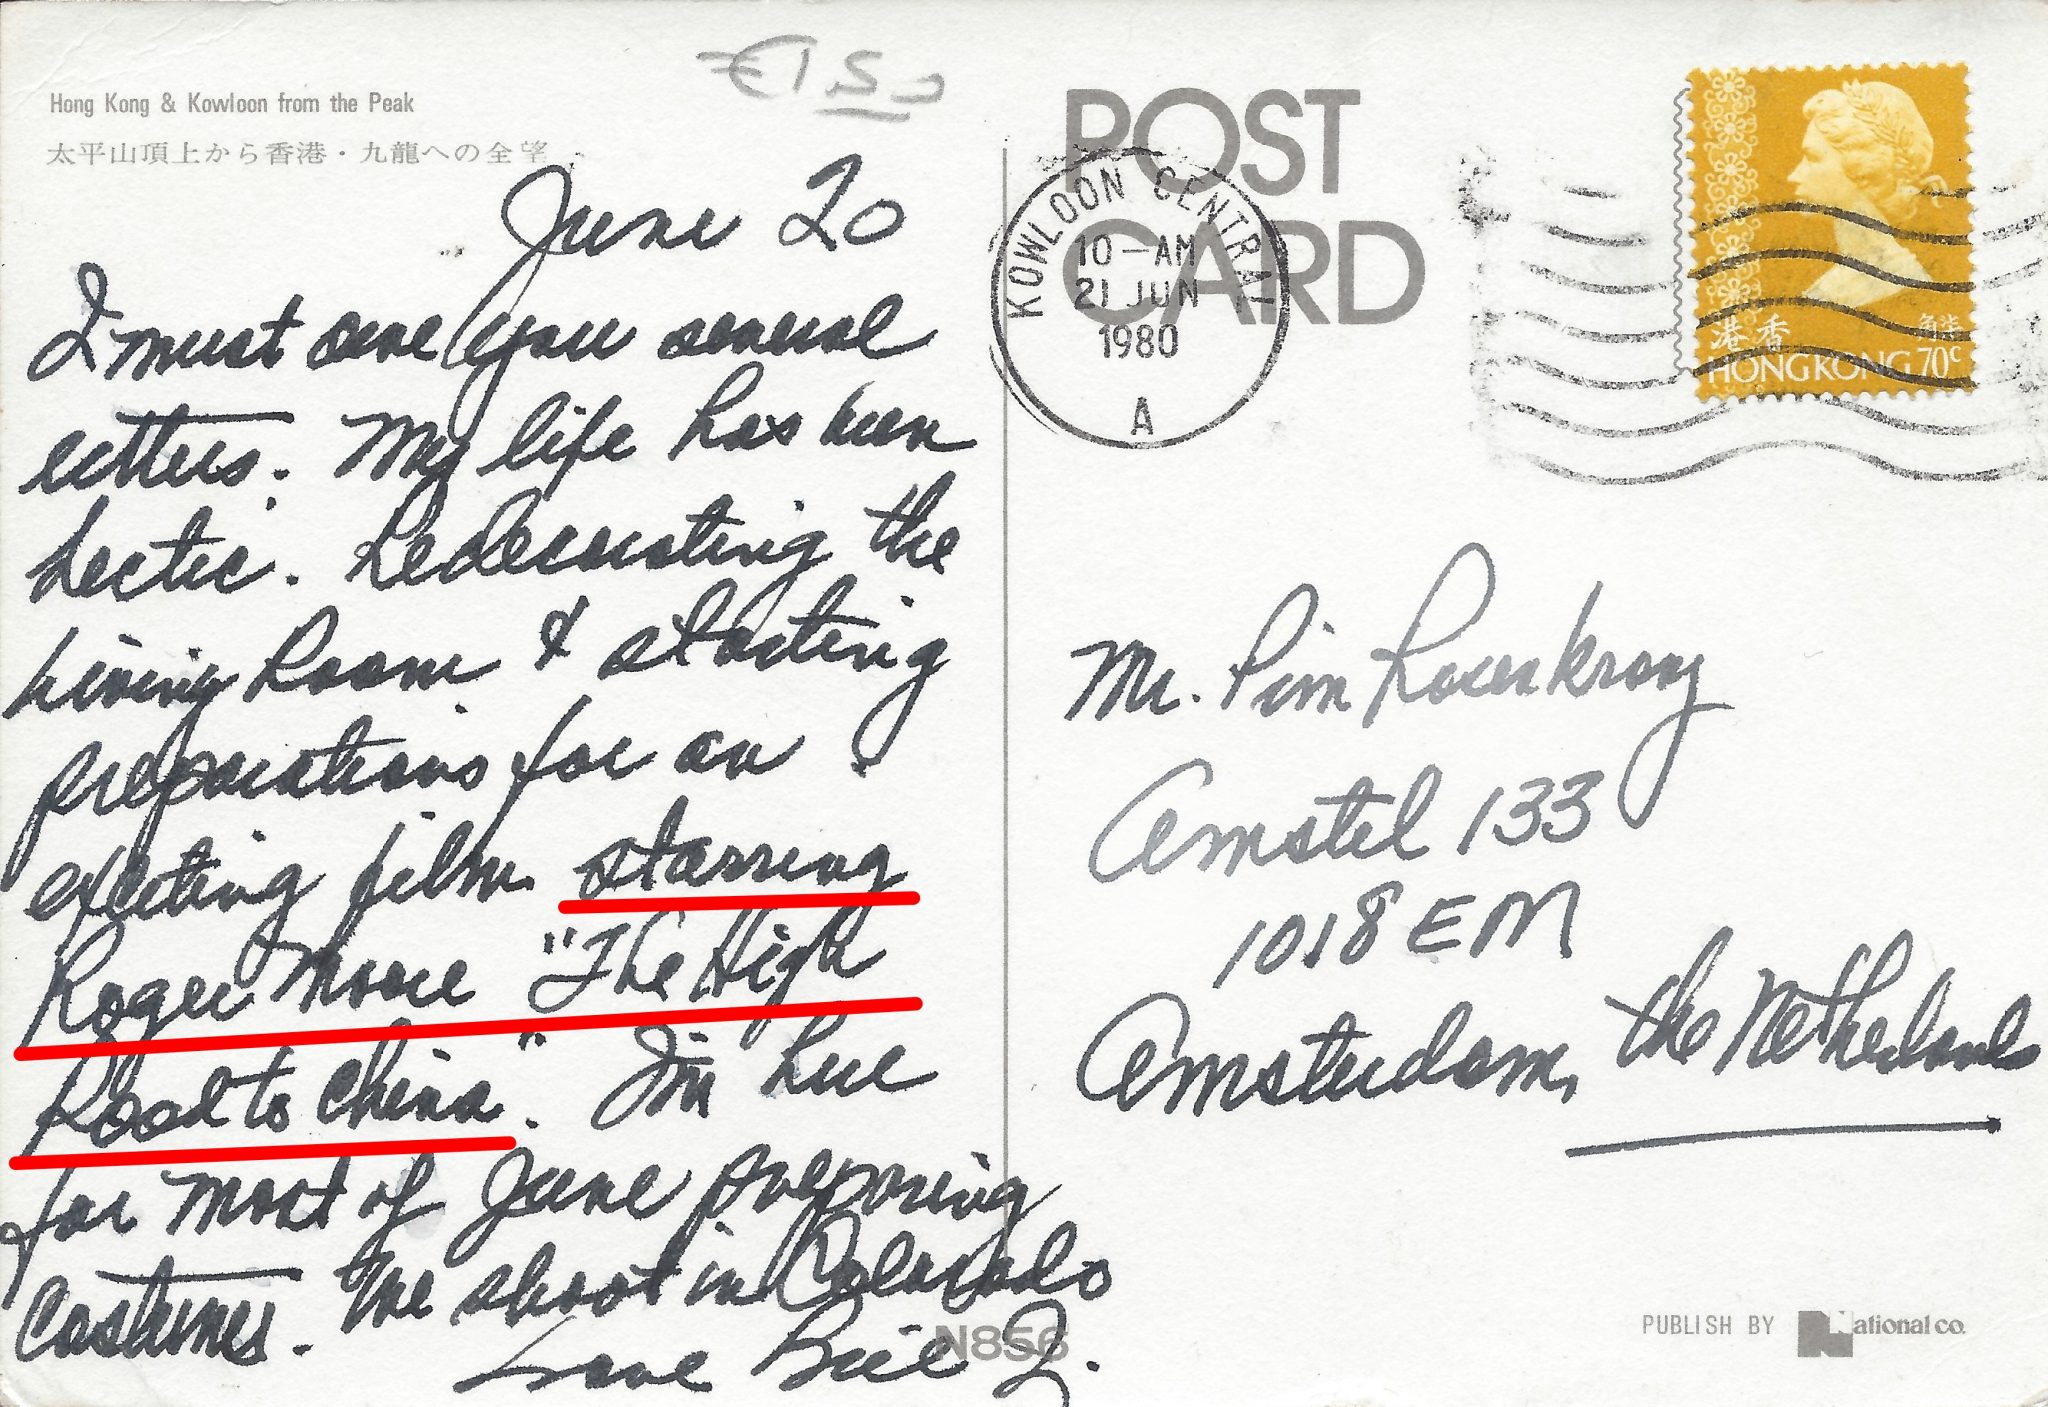 Hong Kong & Kowloon from the Peak
太平山頂上から香港・九龍への全望
€1.50
June 20
I must owe you several
letters. My life has been
hectic. Redecorating the
Living Room & starting
preparations for an
exciting film starring
Roger Moore "The High
Road to China". I'm here
for most of June preparing
costumes. We shoot in Colorado
Love Bill
POST
CARD
KOWLOON CENTRAL
10-AM
21 JUN
1980
A
港香
HONG KONG 70c
Mr. Pim Rosenkranz
Amstel 133
1018 EM
Amsterdam, the Netherlands
N856
PUBLISH BY National co.